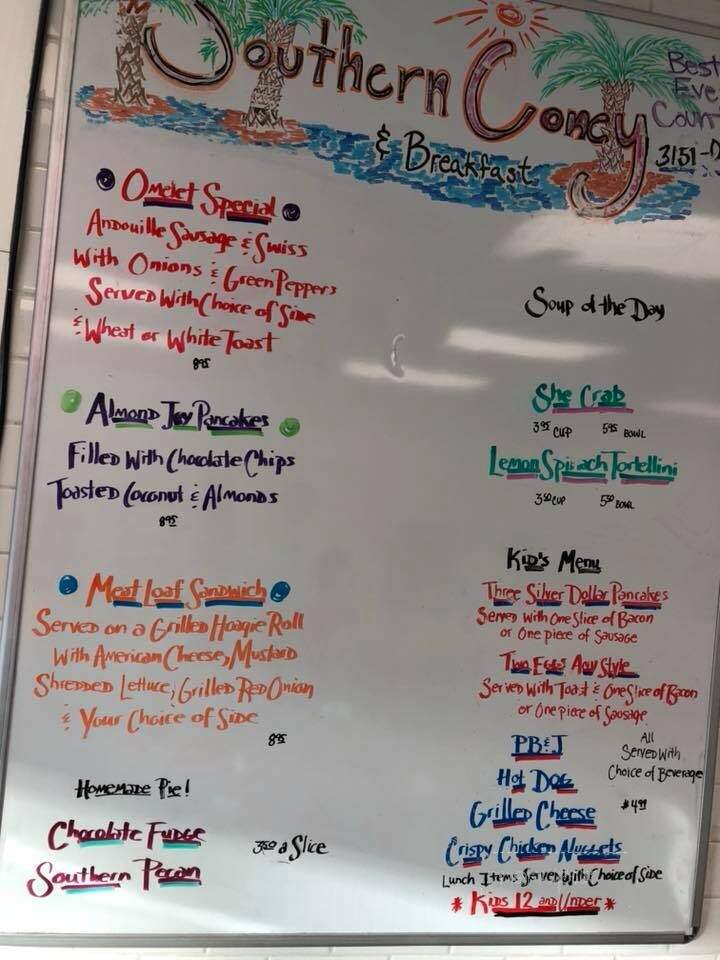 Southern Coney
& Breakfast
Best
Eve
Coun
3151-D
Omelet Special
Andouille Sausage & Swiss
With Onions & Green Peppers
Served With Choice of Side
& Wheat or White Toast
8.95
Almond Joy Pancakes
Filled With Chocolate Chips
Toasted Coconut & Almonds
8.95
Meat Loaf Sandwich
Served on a Grilled Hoagie Roll
With American Cheese, Mustard
Shredded Lettuce, Grilled Red Onion
& Your Choice of Side
8.95
Homemade Pie!
Chocolate Fudge
Southern Pecan
3.50 a Slice
Soup of the Day
She Crab
3.95 cup 5.95 Bowl
Lemon Spinach Tortellini
3.50 cup 5.50 Bowl
Kid's Menu
Three Silver Dollar Pancakes
Served With One Slice of Bacon
or One piece of Sausage
Two Eggs Any Style
Served With Toast & One Slice of Bacon
or One piece of Sausage
PB&J
Hot Dog
Grilled Cheese
Crispy Chicken Nuggets
All
Served With
Choice of Beverage
$4.99
Lunch Items Served With Choice of Side
* Kids 12 and Under *